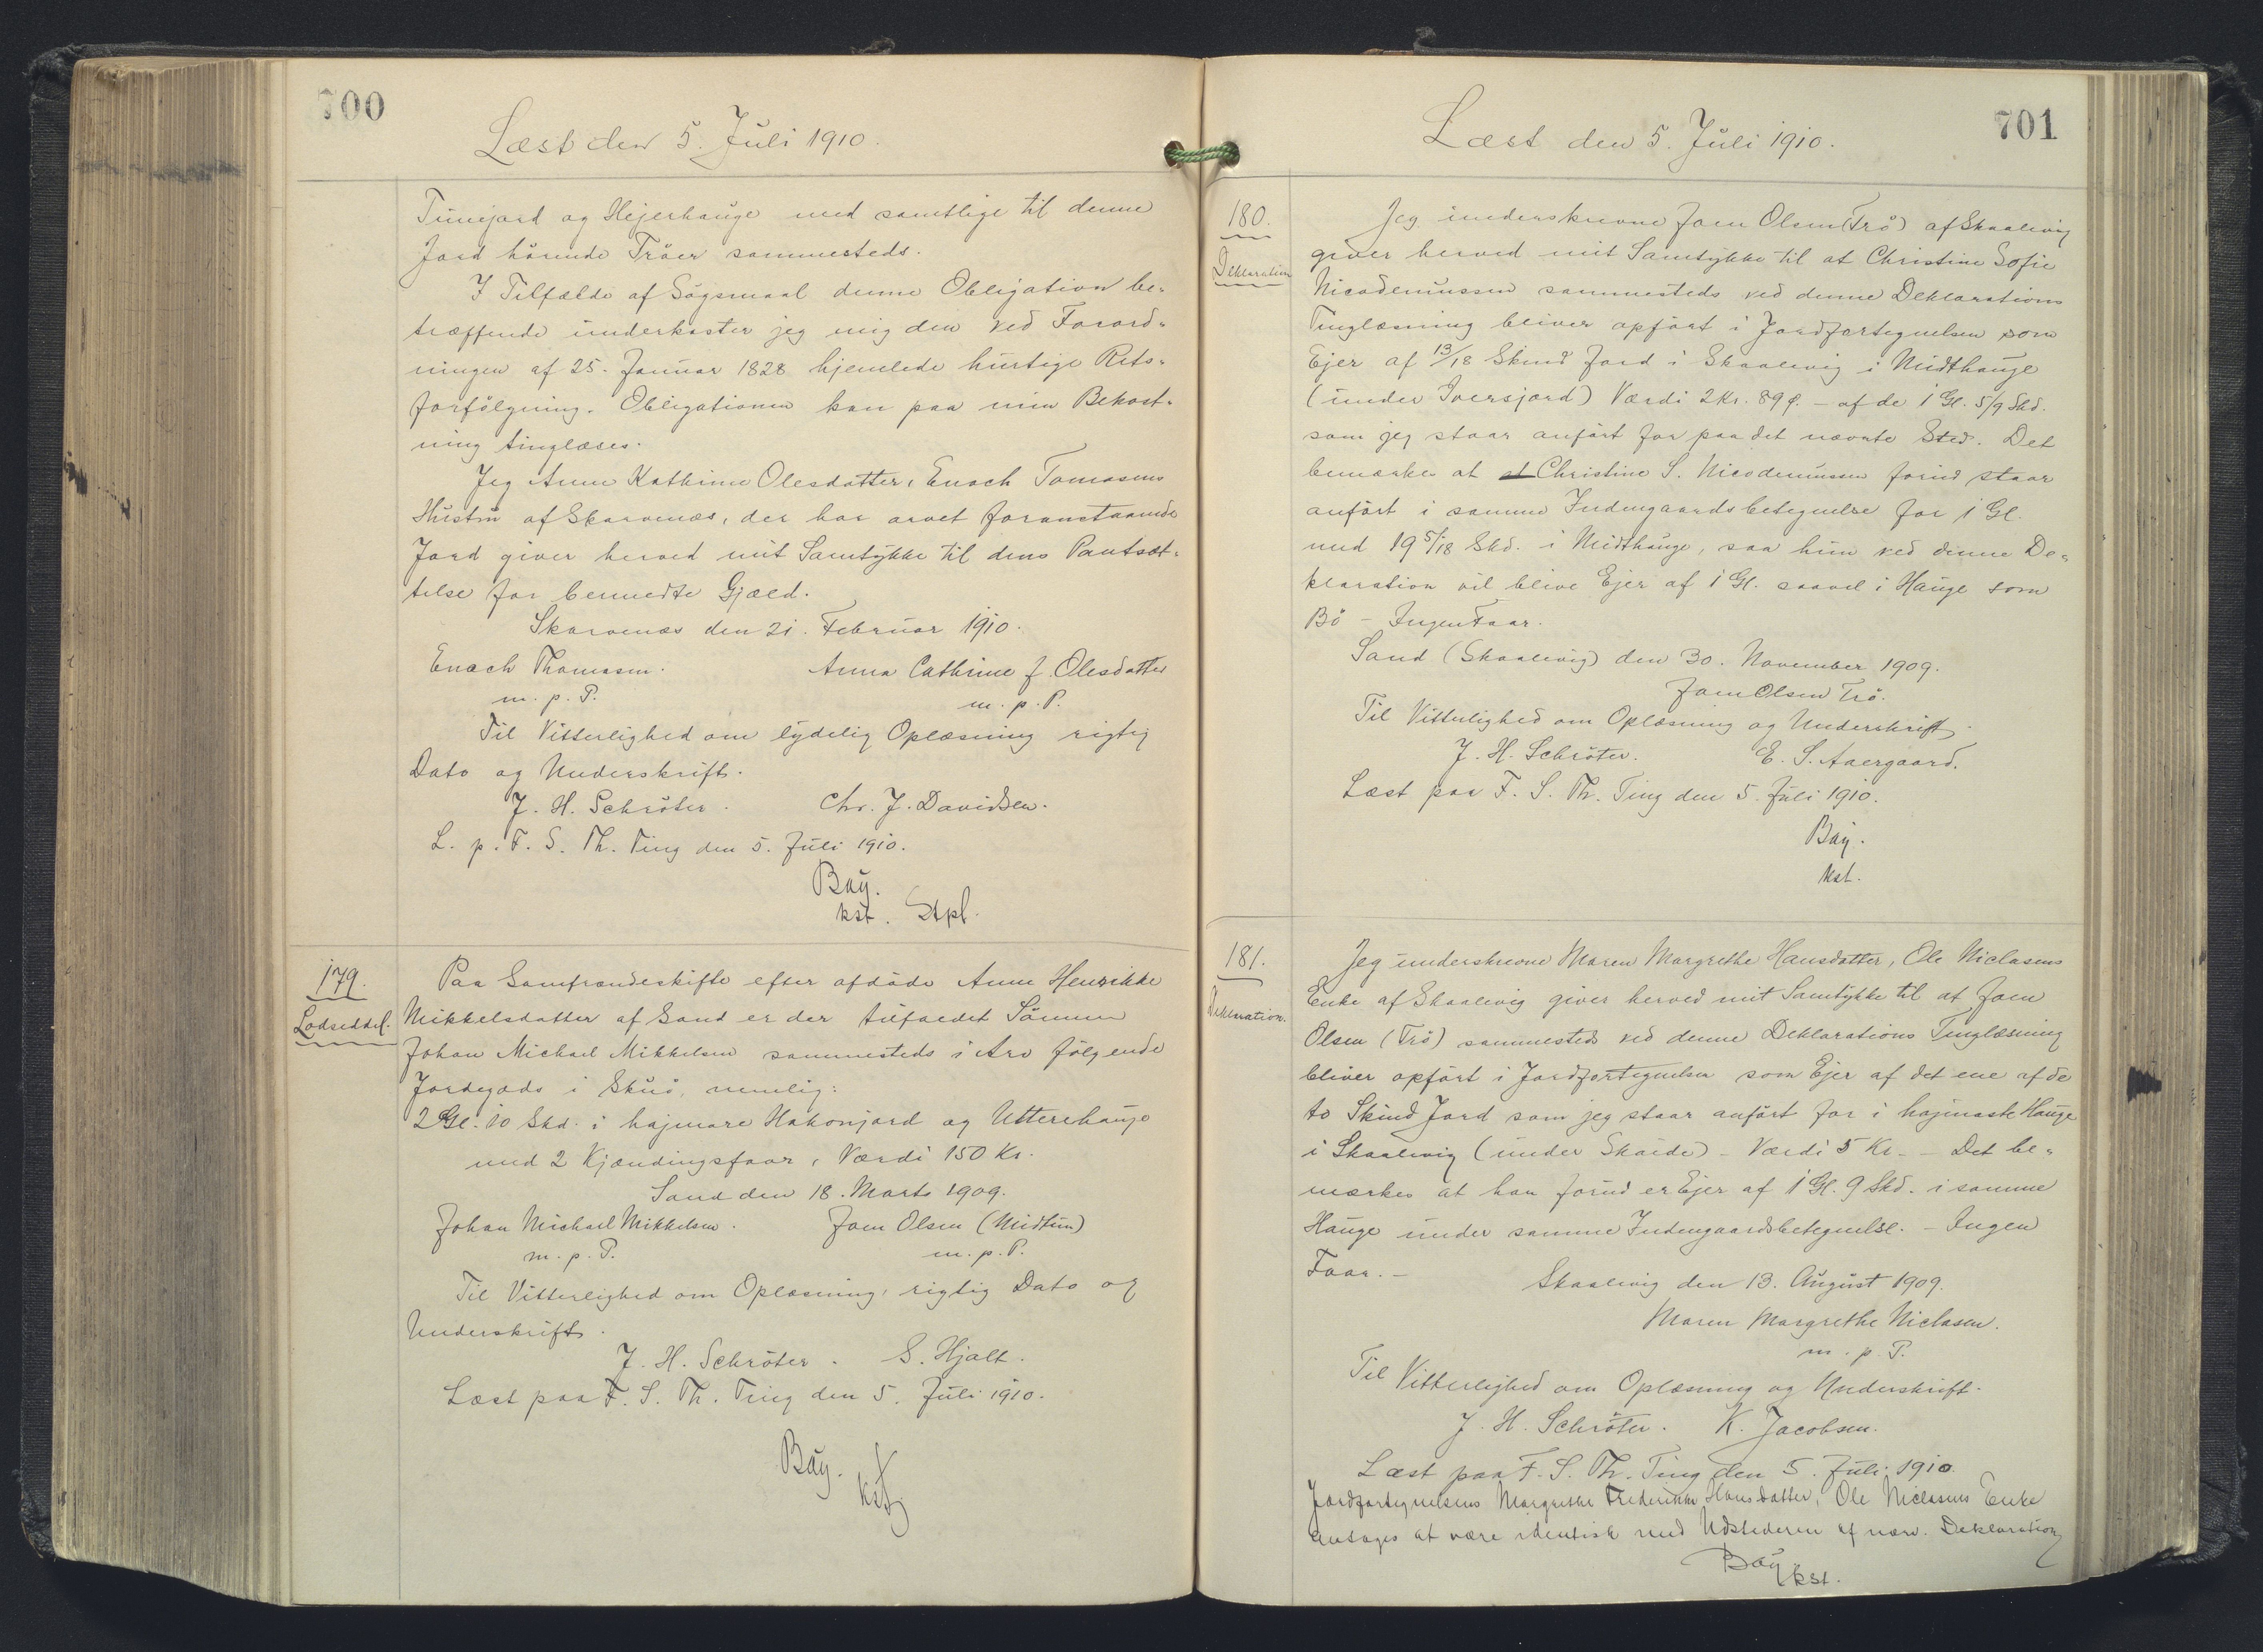 700
Læst den 5. Juli 1910.
Tunejord og Hejerhauge med samtlige til denne
Jord hörende Tröer sammesteds.
I Tilfælde af Sögsmaal denne Obligation be-
træffende underkaster jeg mig den ved Forord-
ningen af 25. Januar 1828 hjemlede hurtige Rets-
forfölgning. Obligationen kan paa min Bekost-
ning tinglæses.
Jeg Anne Kathrine Olesdatter, Enoch Tomasens
Hustru af Skarvenæs, der har arvet foranstaaende
Jord giver herved mit Samtykke til dens Pantsæt-
telse for bemeldte Gjæld.
Skarvenæs den 21. Februar 1910.
Enoch Thomasen. Anna Cathrine f. Olesdatter
m. p. P. m. p. P.
Til Vitterlighed om lydelig Oplæsning rigtig
Dato og Underskrift.
J. H. Schröter. Chr. J. Davidsen.
L. p. F. S. Th. Ting den 5. Juli 1910.
Bay.
kst. Stpl.
179.
Lodseddel.
Paa Samfrændeskifte efter afdöde Anne Henrikke
Mikkelsdatter af Sand er der tilfaldet Sönnen
Johan Michael Mikkelsen sammesteds i Arv fölgende
Jordegods i Skuö, nemlig:
2 Gl. 10 Skd. i hajmare Hakonjord og Utterehauge
med 2 Kjændingsfaar, Værdi 150 Kr.
Sand den 18. Marts 1909.
Johan Michael Mikkelsen. Joen Olsen (Midtun)
m. p. P. m. p. P.
Til Vitterlighed om Oplæsning, rigtig Dato og
Underskrift.
J. H. Schröter. S. Hjalt.
Læst paa F. S. Th. Ting den 5. Juli 1910.
Bay.
kst.
701
Læst den 5. Juli 1910.
180.
Deklaration
Jeg underskrevne Joen Olsen (Trö) af Skaalevig
giver herved mit Samtykke til at Christine Sofie
Nicodemussen sammesteds ved denne Deklarations
Tinglæsning bliver opfört i Jordfortegnelsen som
Ejer af 13/18 Skind Jord i Skaalevig i Midthauge
(under Iversjord) Værdi 2 Kr. 89 Ø. - af de 1 Gl. 5/9 Skd.
som jeg staar anfört for paa det nævnte Sted. Det
bemærkes at at Christine S. Nicodemussen forud staar
anfört i samme Indengaardsbetegnelse for 1 Gl.
med 19 5/18 Skd. i Midthauge, saa hun ved denne De-
klaration vil blive Ejer af 1 Gl. saavel i Hauge som
Bö - Ingen Faar.
Sand (Skaalevig) den 30. November 1909.
Joen Olsen Trö.
Til Vitterlighed om Oplæsning og Underskrift.
J. H. Schröter. E. S. Aaergaard.
Læst paa F. S. Th. Ting den 5. Juli 1910.
Bay.
kst.
181.
Deklaration.
Jeg underskrevne Maren Margrethe Hansdatter, Ole Niclasens
Enke af Skaalevig giver herved mit Samtykke til at Joen
Olsen (Trö) sammesteds ved denne Deklarations Tinglæsning
bliver opfört i Jordfortegnelsen som Ejer af det ene af de
to Skind Jord som jeg staar anfört for i hajmaste Hauge
i Skaalevig (under Skaide) - Værdi 5 Kr. - Det be-
mærkes at han forud er Ejer af 1 Gl. 9 Skd. i samme
Hauge under samme Indengaardsbetegnelse. - Ingen
Faar. -
Skaalevig den 13. August 1909.
Maren Margrethe Niclasen.
m. p. P.
Til Vitterlighed om Oplæsning og Underskrift.
J. H. Schröter. K. Jacobsen.
Læst paa F. S. Th. Ting den 5. Juli 1910.
Jordfortegnelsens Margrethe Frederikke Hansdatter, Ole Niclasens Enke
antages at være identisk med Udstederen af nærv. Deklaration
Bay
kst.